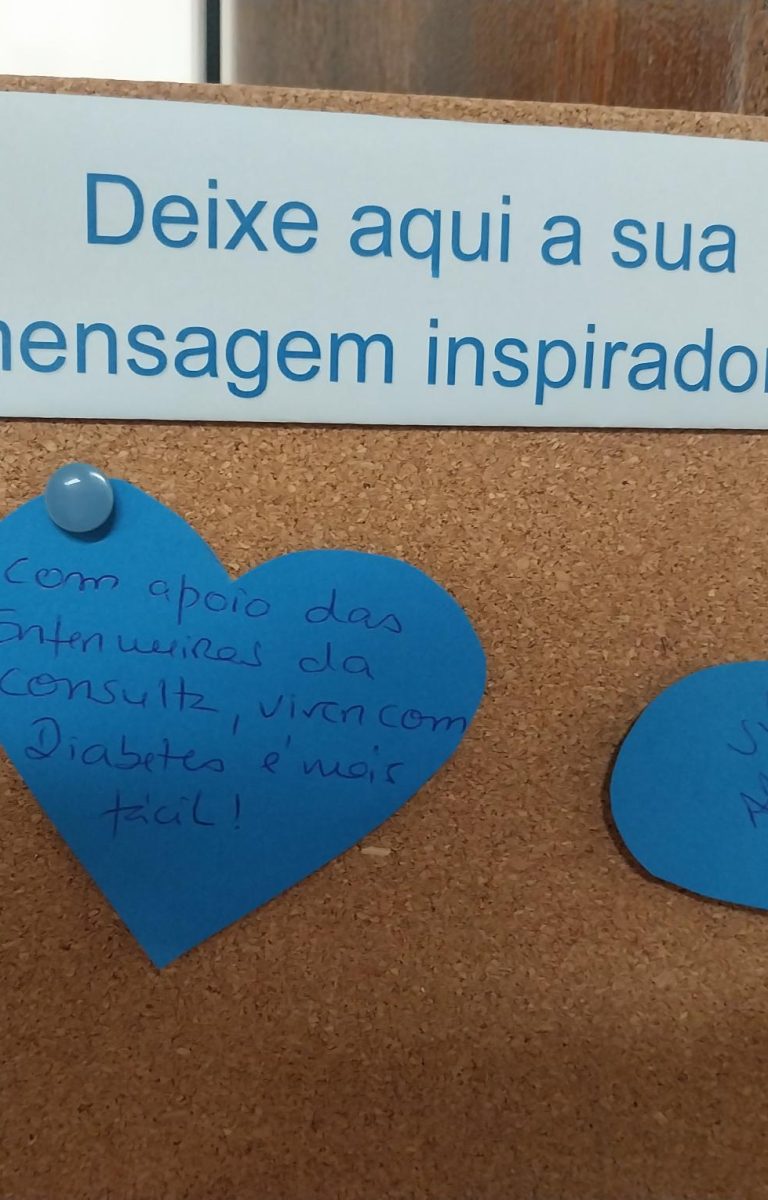 Deixe aqui a sua
mensagem inspirador
com apoio das
Enfermeiras da
consulta, viver com
Diabetes é mais
fácil!